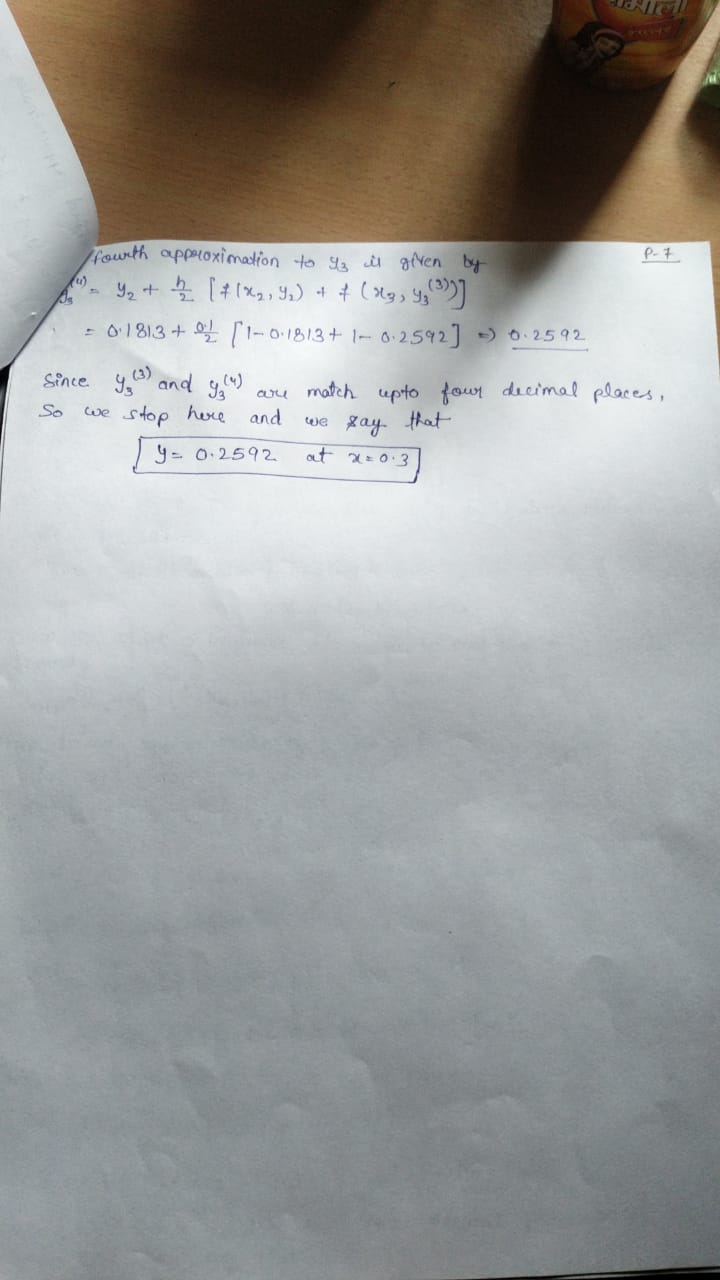 P-7
fourth approximation to y₃ is given by
y₃⁽⁴⁾ = y₂ + h/2 [f(x₂, y₂) + f(x₃, y₃⁽³⁾)]
= 0.1813 + 0.1/2 [1-0.1813 + 1- 0.2592] => 0.2592
Since y₃⁽³⁾ and y₃⁽⁴⁾ are match upto four decimal places,
So we stop here and we say that
y = 0.2592 at x = 0.3